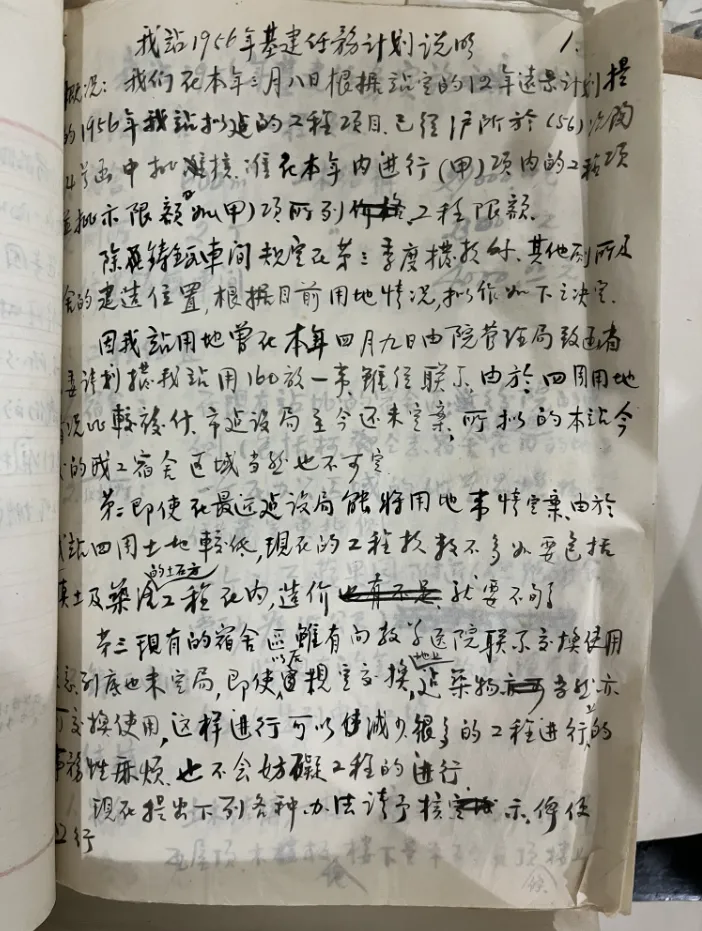 我站1956年基建任務计划说明 1.
概况: 我们在本年三月八日根据站定的12年远景计划提
的1956年我站拟造的工程项目.已经沪所於(56)沪
4号函中批准在本年内进行(甲)项内的工程项
批示限额如(甲)项所列工程限额.
除铸車间規定在第三季度撥款外.其他列所及
舍的建造位置,根据目前用地情况,拟作如下之决定.
因我站用地曾在本年四月九日由院管理局致函省
委计划撥我站用160放一事雖经联系.由於四周用地
况比較複什.市建设局至今还未定案,所拟的本站今
的职工宿舍区域当然也不可定.
第二即使在最近建设局能将用地事情定案,由於
我站四周土地較低,現在的工程款数不多如要包括
填土及築的土石方工程在内,造价就要不够了
第三現有的宿舍區雖有向教学医院联系交換使用
到底也未定局,即使以后規定交換,地上建築物当然亦
可交換使用,这样进行可以使减少很多的工程进行上的
事務性麻煩.也不会妨礙工程的进行.
現在提出下列各种办法请予核示,俾便
行